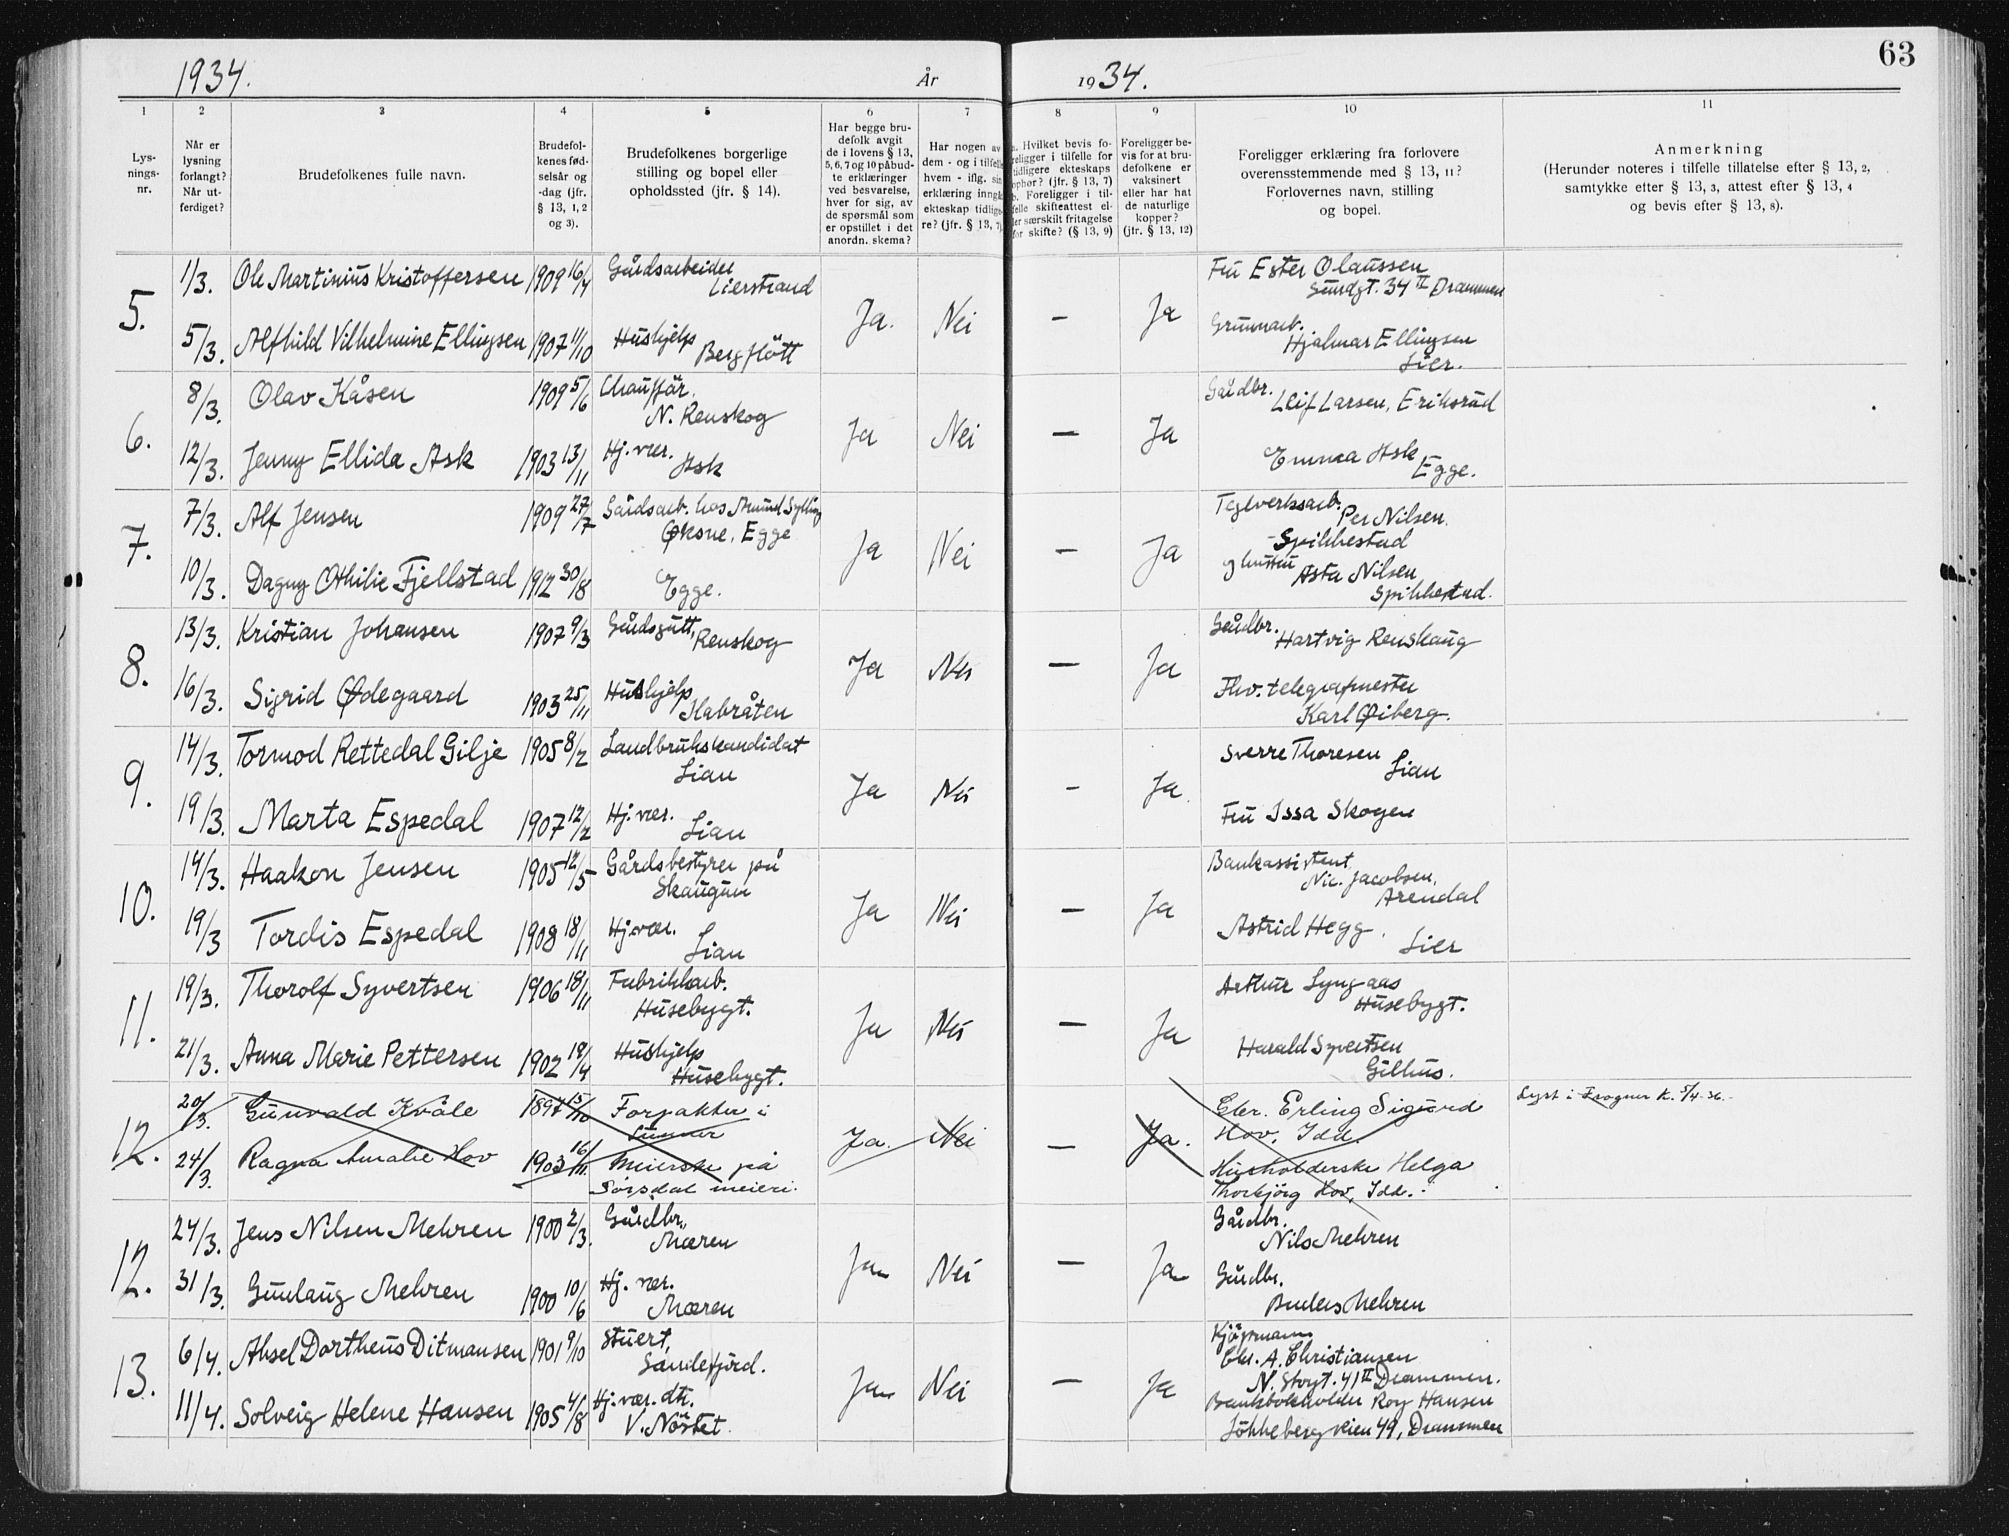 63
1934.
År
1934.
1 2 3 4 5 6 7 8 9 10 11
Lys-
nings-
nr.
Når er
lysning
forlangt?
Når ut-
ferdiget?
Brudefolkenes fulle navn.
Brudefol-
kenes fød-
selsår og
-dag (jfr.
§ 13, 1, 2
og 3).
Brudefolkenes borgerlige
stilling og bopel eller
opholdssted (jfr. § 14).
Har begge bru-
defolk avgit
de i lovens § 13,
5, 6, 7 og 10 påbud-
te erklæringer
ved besvarelse,
hver for sig, av
de spørsmål som
er opstillet i det
anordn. skema?
Har nogen av
dem - og i tilfelle
hvem - iflg. sin
erklæring inngå
ekteskap tidlige-
re? (jfr. § 13, 7)
a. Hvilket bevis fo-
religger i tilfelle for
tidligere ekteskaps
ophør? (jfr. § 13, 7)
b. Foreligger i til-
felle skifteattest el-
ler særskilt fritagelse
for skifte? (§ 13, 9)
Foreligger be-
vis for at bru-
defolkene er
vaksinert
eller har hat
de naturlige
kopper?
(jfr. § 13, 12)
Foreligger erklæring fra forlovere
overensstemmende med § 13, 11?
Forlovernes navn, stilling
og bopel.
Anmerkning
(Herunder noteres i tilfelle tillatelse efter § 13, 2,
samtykke efter § 13, 3, attest efter § 13, 4
og bevis efter § 13, 8).
5.
1/3. Ole Martinius Kristoffersen 1909 16/4 Gårdsarbeider
Lierstrand
5/3. Alfhild Vilhelmine Ellingsen 1907 11/10 Hushjelp
Bergflött
Ja. Nei — Ja
Fru Ester Olaussen
Sundgt. 34 II Drammen
Grunnarb.
Hjalmar Ellingsen
Lier.
6.
8/3. Olav Kåsen 1909 5/6 Chauffør.
N. Renskog
12/3. Jenny Ellida Ask 1903 13/11 Hj. vær.
Ask
Ja Nei — Ja
Gårdbr.
Leif Larsen, Eriksrud
Emma Ask
Egge.
7.
7/3. Alf Jensen 1909 27/7 Gårdsarb. hos Amund Sylling
Øksne, Egge
10/3. Dagny Othilie Fjellstad 1912 30/8 Egge.
Ja Nei — Ja
Teglverksarb.
Per Nilsen.
Spikkestad
og hustru
Asta Nilsen
Spikkestad.
8.
13/3. Kristian Johansen 1907 9/3 Gårdsgutt,
Renskog
16/3. Sigrid Ødegaard 1903 25/11 Hushjelp
Habråten
Ja Nei — Ja
Gårdbr.
Hartvig Renskaug
Fhv. telegrafmester
Karl Øiberg.
9.
14/3. Tormod Rettedal Gilje 1905 8/2 Landbrukskandidat
Lian
19/3. Marta Espedal 1907 12/2 Hj. vær.
Lian
Ja Nei - Ja
Sverre Thoresen
Lian
Fru Issa Skogen
10.
14/3. Haakon Jensen 1905 12/5 Gårdsbestyrer på
Skaugum
19/3 Tordis Espedal 1908 18/11 Hj. vær.
Lian
Ja Nei — Ja
Bankassistent
Nic. Jacobsen,
Arendal
Astrid Hegg.
Lier
11.
19/3. Thorolf Syvertsen 1906 18/11 Fabrikkarb.
Husebygt.
21/3. Anna Marie Pettersen 1902 19/4 Hushjelp
Husebygt.
Ja Nei — Ja
Arthur Lyngaas
Husebygt.
Harald Syvertsen
Gilhus.
12.
20/3. Gunvald Kvåle 1897 15/10 Forpakter i
24/3. Ragna Amalie Hov 1903 16/11. Meierske på
Sørsdal meieri.
Ja. Nei — Ja.
Chr. Erling Sigurd
Hov, Idd.
Husholderske Helga
Thorbjörg Hov, Idd.
Lyst i Frogner K. 5/4-36.
12.
24/3. Jens Nilsen Mehren 1900 2/3. Gårdbr.
Mæren
31/3. Gunlaug Mehren 1900 10/6 Hj. vær.
Mæren
Ja Nei — Ja
Gårdbr.
Nils Mehren
Gårdbr.
Anders Mehren
13.
6/4. Aksel Dortheus Ditmansen 1901 9/10 Stuert,
Sandefjord.
11/4. Solveig Helene Hansen 1905 4/8 Hj. vær. dtr.
V. Nöstet.
Ja Nei — Ja
Kjøpmann
Chr. A. Christiansen
N. Storgt. 41 II Drammen.
Bankbokholder Roy Hansen
Jökkebergveien 49, Drammen